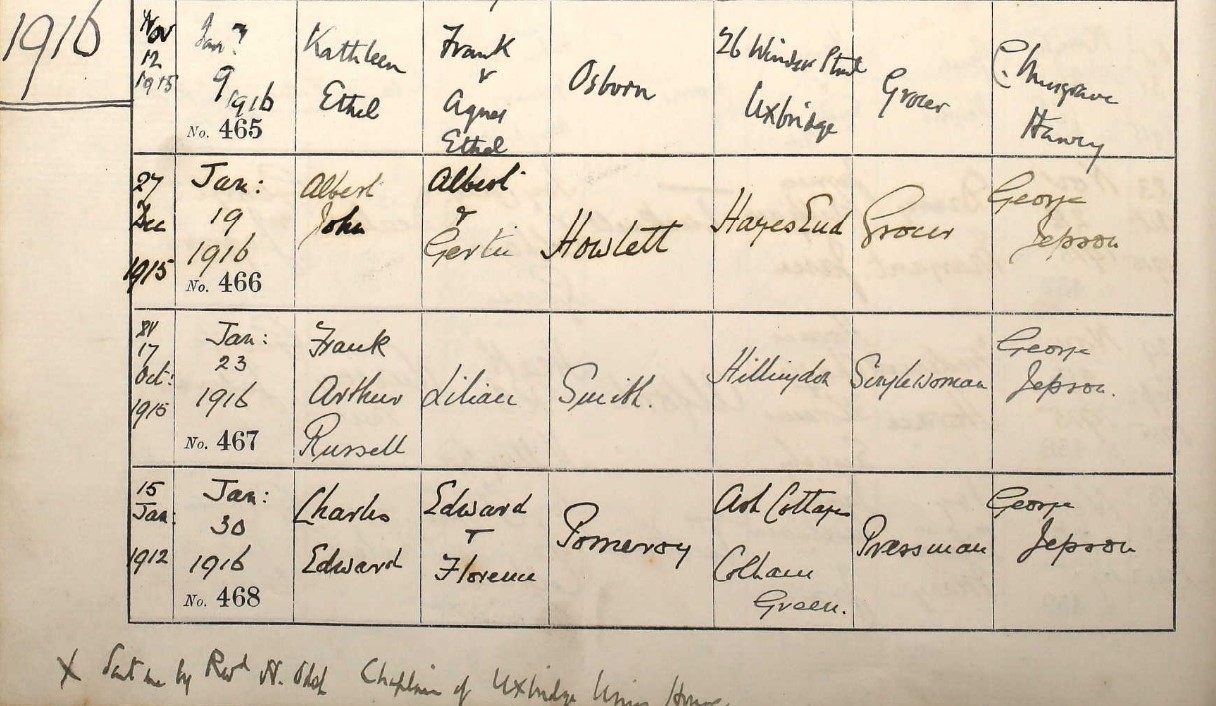 1916
Nov
12
1915
Jan:
9
1916
No. 465
Kathleen
Ethel
Frank
&
Agnes
Ethel
Osborn
26 Windsor Street
Uxbridge
Grocer
C. Musgrave
Harvey
27
Dec
1915
Jan:
19
1916
No. 466
Albert
John
Albert
&
Gertie
Howlett
Hayes End
Grocer
George
Jepson
17
Oct:
1915
Jan:
23
1916
No. 467
Frank
Arthur
Russell
Lilian
Smith.
Hillingdon
Singlewoman
George
Jepson.
15
Jan:
1912
Jan:
30
1916
No. 468
Charles
Edward
Edward
&
Florence
Pomeroy
Ash Cottages
Colham
Green.
Pressman
George
Jepson
X Sent me by Revd H. Chaplain of Uxbridge Union House